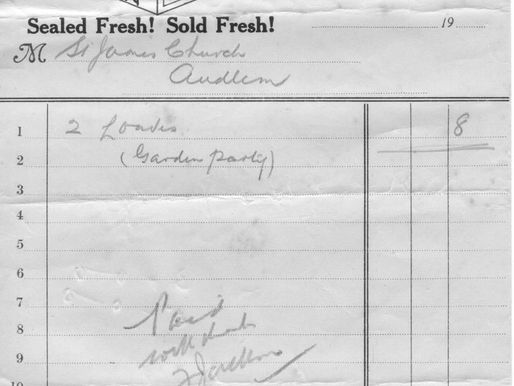 Sealed Fresh! Sold Fresh!
19
M St James Church
Audlem
1 2 Loaves 8
2 (Garden party)
3
4
5
6
7
Paid
8
with thanks
9
10